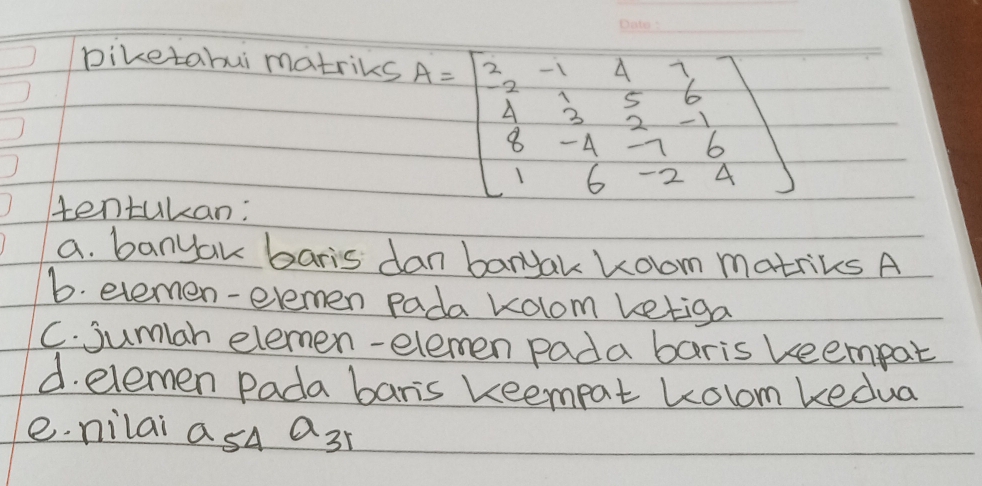 Date :
Diketahui matriks A = [2 -1 4 7
-2 1 5 6
4 3 2 -1
8 -4 -7 6
1 6 -2 4]
tentukan:
a. banyak baris dan banyak kolom matriks A
b. elemen-elemen pada kolom ketiga
c. jumlah elemen-elemen pada baris keempat
d. elemen pada baris keempat kolom kedua
e. nilai a54 a31